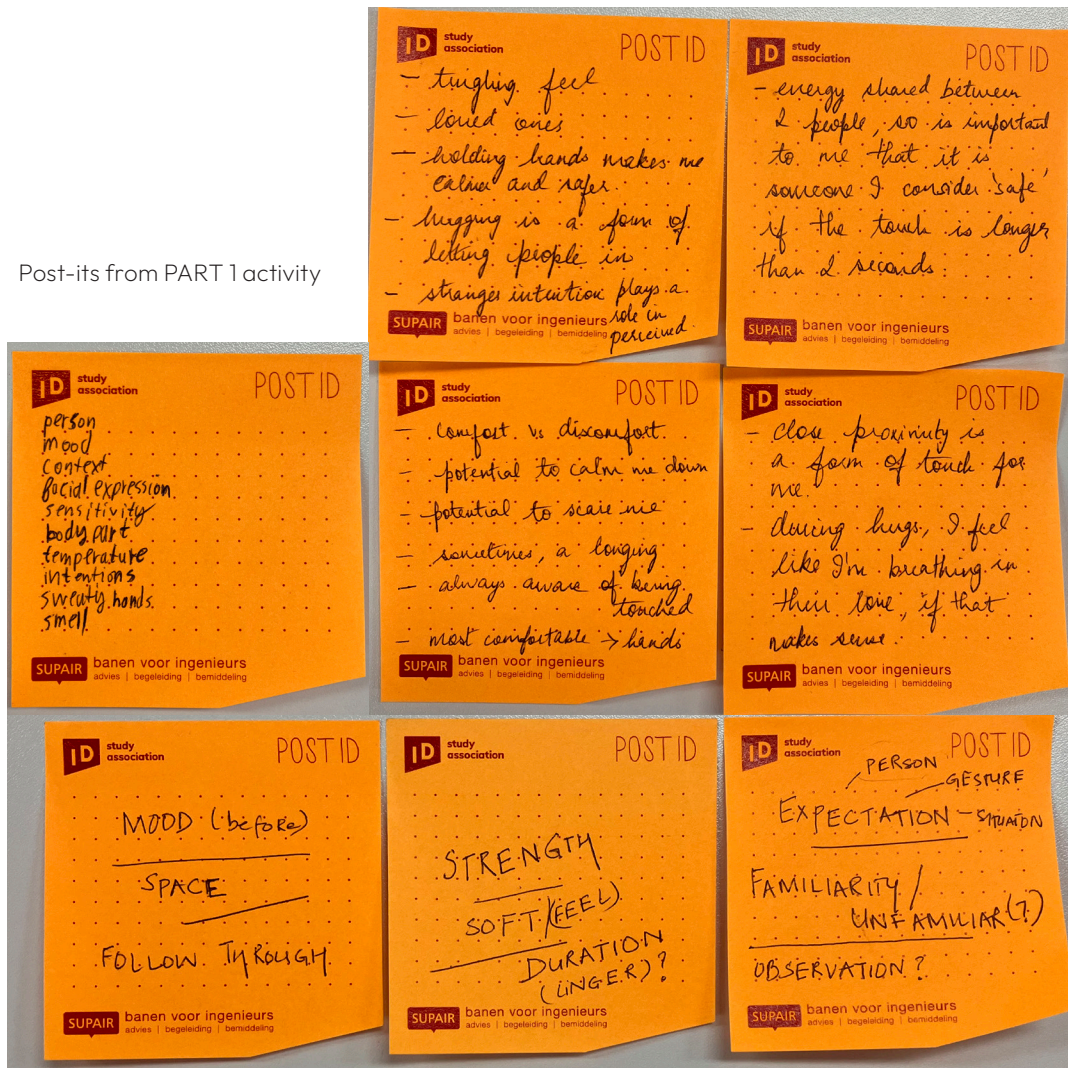 Post-its from PART 1 activity
ID study
association
POST ID
- tingling feel
- loved ones
- holding hands makes me
calmer and safer.
- hugging is a form of
letting people in
- stranger intention plays a
role in
perceived.
SUPAIR banen voor ingenieurs
advies | begeleiding | bemiddeling
ID study
association
POST ID
- energy shared between
2 people, so is important
to me that it is
someone I consider 'safe'
if the touch is longer
than 2 seconds.
SUPAIR banen voor ingenieurs
advies | begeleiding | bemiddeling
ID study
association
POST ID
person
mood
context
facial expression
sensitivity
body part
temperature
intentions
sweaty hands.
smell
SUPAIR banen voor ingenieurs
advies | begeleiding | bemiddeling
ID study
association
POST ID
- comfort vs discomfort.
- potential to calm me down
- potential to scare me
- sometimes, a longing
- always aware of being
touched
- most comfortable → hands
SUPAIR banen voor ingenieurs
advies | begeleiding | bemiddeling
ID study
association
POST ID
- close proximity is
a form of touch for
me.
- during hugs, I feel
like I'm breathing in
their love, if that
makes sense.
SUPAIR banen voor ingenieurs
advies | begeleiding | bemiddeling
ID study
association
POST ID
MOOD (before)
SPACE
FOLLOW THROUGH
SUPAIR banen voor ingenieurs
advies | begeleiding | bemiddeling
ID study
association
POST ID
STRENGTH
SOFT/(FEEL)
DURATION
(LINGER)?
SUPAIR banen voor ingenieurs
advies | begeleiding | bemiddeling
ID study
association
POST ID
PERSON
GESTURE
EXPECTATION - SITUATION
FAMILIARITY /
UNFAMILIAR(?)
OBSERVATION?
SUPAIR banen voor ingenieurs
advies | begeleiding | bemiddeling